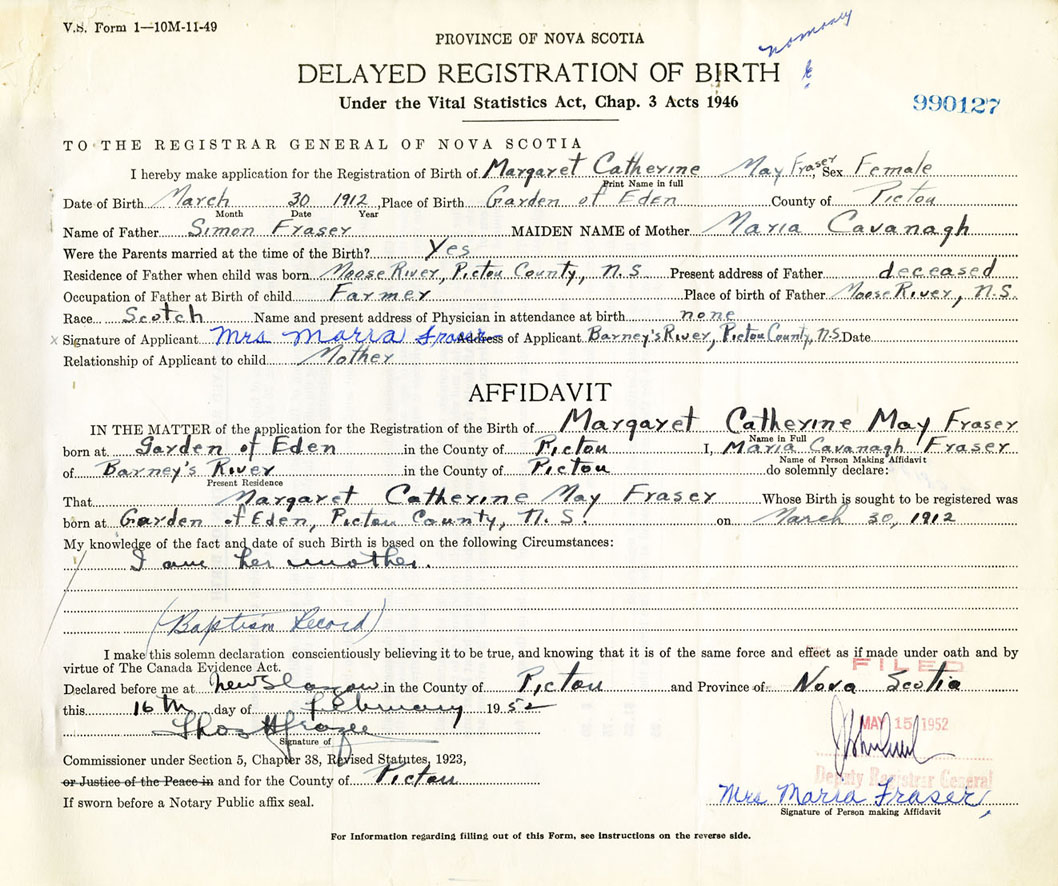 V.S. Form 1—10M-11-49
PROVINCE OF NOVA SCOTIA
DELAYED REGISTRATION OF BIRTH
Under the Vital Statistics Act, Chap. 3 Acts 1946
990127
TO THE REGISTRAR GENERAL OF NOVA SCOTIA
I hereby make application for the Registration of Birth of Margaret Catherine May Fraser, Sex Female
Print Name in full
Date of Birth March 30 1912, Place of Birth Garden of Eden County of Pictou
Month Date Year
Name of Father Simon Fraser MAIDEN NAME of Mother Maria Cavanagh
Were the Parents married at the time of the Birth? Yes
Residence of Father when child was born Moose River, Pictou County, N.S. Present address of Father deceased
Occupation of Father at Birth of child Farmer Place of birth of Father Moose River, N.S.
Race Scotch Name and present address of Physician in attendance at birth none
x Signature of Applicant Mrs Maria Fraser Address of Applicant Barney's River, Pictou County, N.S. Date
Relationship of Applicant to child Mother
AFFIDAVIT
IN THE MATTER of the application for the Registration of the Birth of Margaret Catherine May Fraser
Name in Full
born at Garden of Eden in the County of Pictou I, Maria Cavanagh Fraser
Name of Person Making Affidavit
of Barney's River in the County of Pictou do solemnly declare:
Present Residence
That Margaret Catherine May Fraser Whose Birth is sought to be registered was
born at Garden of Eden, Pictou County, N.S. on March 30, 1912
My knowledge of the fact and date of such Birth is based on the following Circumstances:
I am her mother.
(Baptism Record)
I make this solemn declaration conscientiously believing it to be true, and knowing that it is of the same force and effect as if made under oath and by
virtue of The Canada Evidence Act.
FILED
Declared before me at New Glasgow in the County of Pictou and Province of Nova Scotia
this 16th day of February 1952
MAY 15 1952
Signature of
Commissioner under Section 5, Chapter 38, Revised Statutes, 1923,
Deputy Registrar General
or Justice of the Peace in and for the County of Pictou
Mrs Maria Fraser,
If sworn before a Notary Public affix seal.
Signature of Person making Affidavit
For Information regarding filling out of this Form, see instructions on the reverse side.